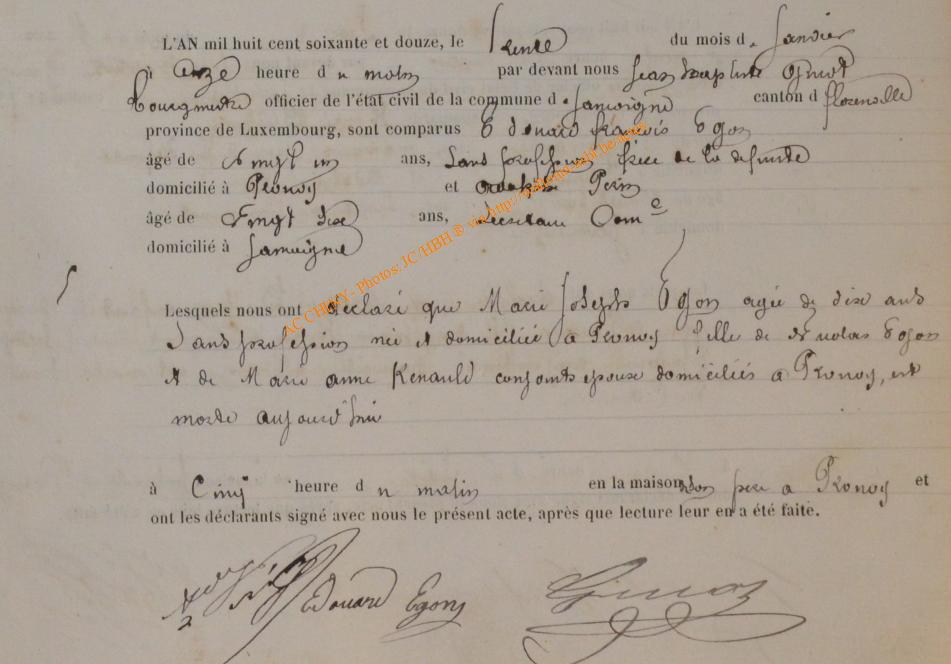 L'AN mil huit cent soixante et douze, le trente du mois d. Janvier
à onze heure d u matin par devant nous Jean Baptiste
bourgmestre officier de l'état civil de la commune d. Jamoigne canton d florenville
province de Luxembourg, sont comparus Edouard françois Egon
âgé de vingt un ans, sans profession frère de la defunte
domicilié à Pronoy et Perin
âgé de vingt six ans, secretaire Com^e
domicilié à Jamoigne
Lesquels nous ont déclaré que Marie Joseph Egon agée de dix ans
Sans profession née et domiciliée à Pronoy fille de Nicolas Egon
et de Marie anne Renauld conjoints epoux domiciliés a Pronoy, est
morte aujourd'hui
à Cinq heure d u matin en la maison son père a Pronoy et
ont les déclarants signé avec nous le présent acte, après que lecture leur en a été faite.
Edouard Egon
AC CHINY - Photos: JC/HBH ® via http://